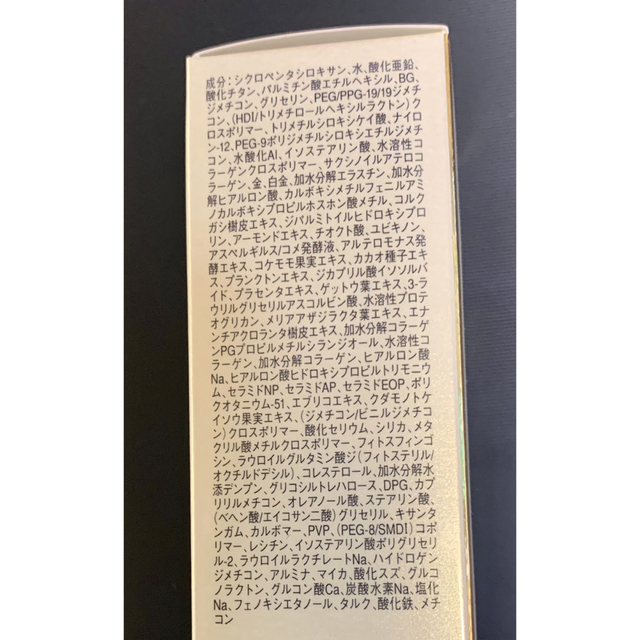 成分：シクロペンタシロキサン、水、酸化亜鉛、
酸化チタン、パルミチン酸エチルヘキシル、BG、
ジメチコン、グリセリン、PEG/PPG-19/19ジメチ
コン、(HDI/トリメチロールヘキシルラクトン)ク
ロスポリマー、トリメチルシロキシケイ酸、ナイロ
ン-12、PEG-9ポリジメチルシロキシエチルジメチ
コン、水酸化Al、イソステアリン酸、水溶性コ
ラーゲンクロスポリマー、サクシノイルアテロコ
ラーゲン、金、白金、加水分解エラスチン、加水分
解ヒアルロン酸、カルボキシメチルフェニルアミ
ノカルボキシプロピルホスホン酸メチル、コルク
ガシ樹皮エキス、ジパルミトイルヒドロキシプロ
リン、アーモンドエキス、チオクト酸、ユビキノン、
アスペルギルス/コメ発酵液、アルテロモナス発
酵エキス、コケモモ果実エキス、カカオ種子エキ
ス、プランクトンエキス、ジカプリル酸イソソルバ
イド、プラセンタエキス、ゲットウ葉エキス、3-ラ
ウリルグリセリルアスコルビン酸、水溶性プロテ
オグリカン、メリアアザジラクタ葉エキス、エナ
ンチアクロランタ樹皮エキス、加水分解コラーゲ
ンPGプロピルメチルシランジオール、水溶性コ
ラーゲン、加水分解コラーゲン、ヒアルロン酸
Na、ヒアルロン酸ヒドロキシプロピルトリモニウ
ム、セラミドNP、セラミドAP、セラミドEOP、ポリ
クオタニウム-51、エブリコエキス、クダモノトケ
イソウ果実エキス、(ジメチコン/ビニルジメチコ
ン)クロスポリマー、酸化セリウム、シリカ、メタ
クリル酸メチルクロスポリマー、フィトスフィンゴ
シン、ラウロイルグルタミン酸ジ(フィトステリル/
オクチルドデシル)、コレステロール、加水分解水
添デンプン、グリコシルトレハロース、DPG、カプ
リリルメチコン、オレアノール酸、ステアリン酸、
(ベヘン酸/エイコサン二酸)グリセリル、キサンタ
ンガム、カルボマー、PVP、(PEG-8/SMDI)コポ
リマー、レシチン、イソステアリン酸ポリグリセリ
ル-2、ラウロイルラクチレートNa、ハイドロゲン
ジメチコン、アルミナ、マイカ、酸化スズ、グルコ
ノラクトン、グルコン酸Ca、炭酸水素Na、塩化
Na、フェノキシエタノール、タルク、酸化鉄、メチ
コン